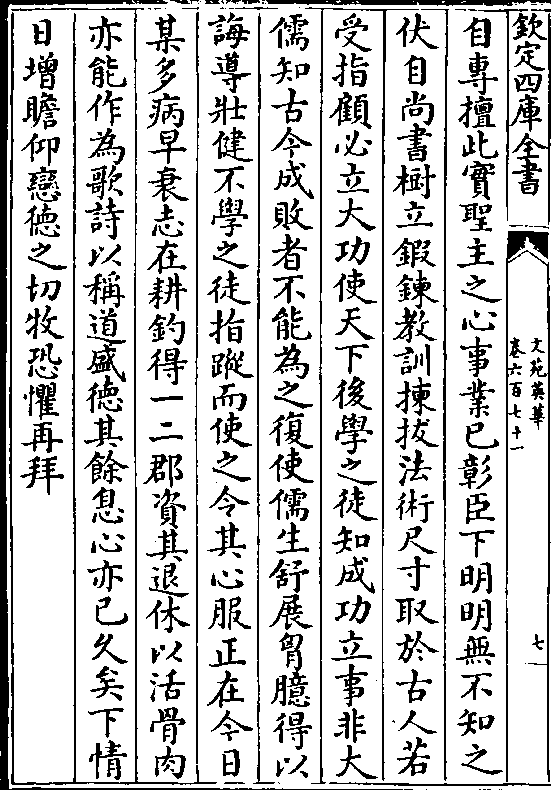 欽定四庫全書
文苑英華
卷六百七十一
七
自專擅此實聖主之心事業已彰臣下明明無不知之
伏自尚書樹立鍜鍊教訓揀拔法術尺寸取於古人若
受指顧必立大功使天下後學之徒知成功立事非大
儒知古今成敗者不能為之復使儒生舒展胷臆得以
誨導壯健不學之徒指蹤而使之令其心服正在今日
某多病早衰志在耕釣得一二郡資其退休以活骨肉
亦能作為歌詩以稱道盛徳其餘息心亦已久矣下情
日增瞻仰戀徳之切牧恐懼再拜